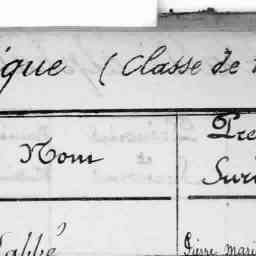 ique (Classe de
Nom
Pre
Sur
Pierre Mari